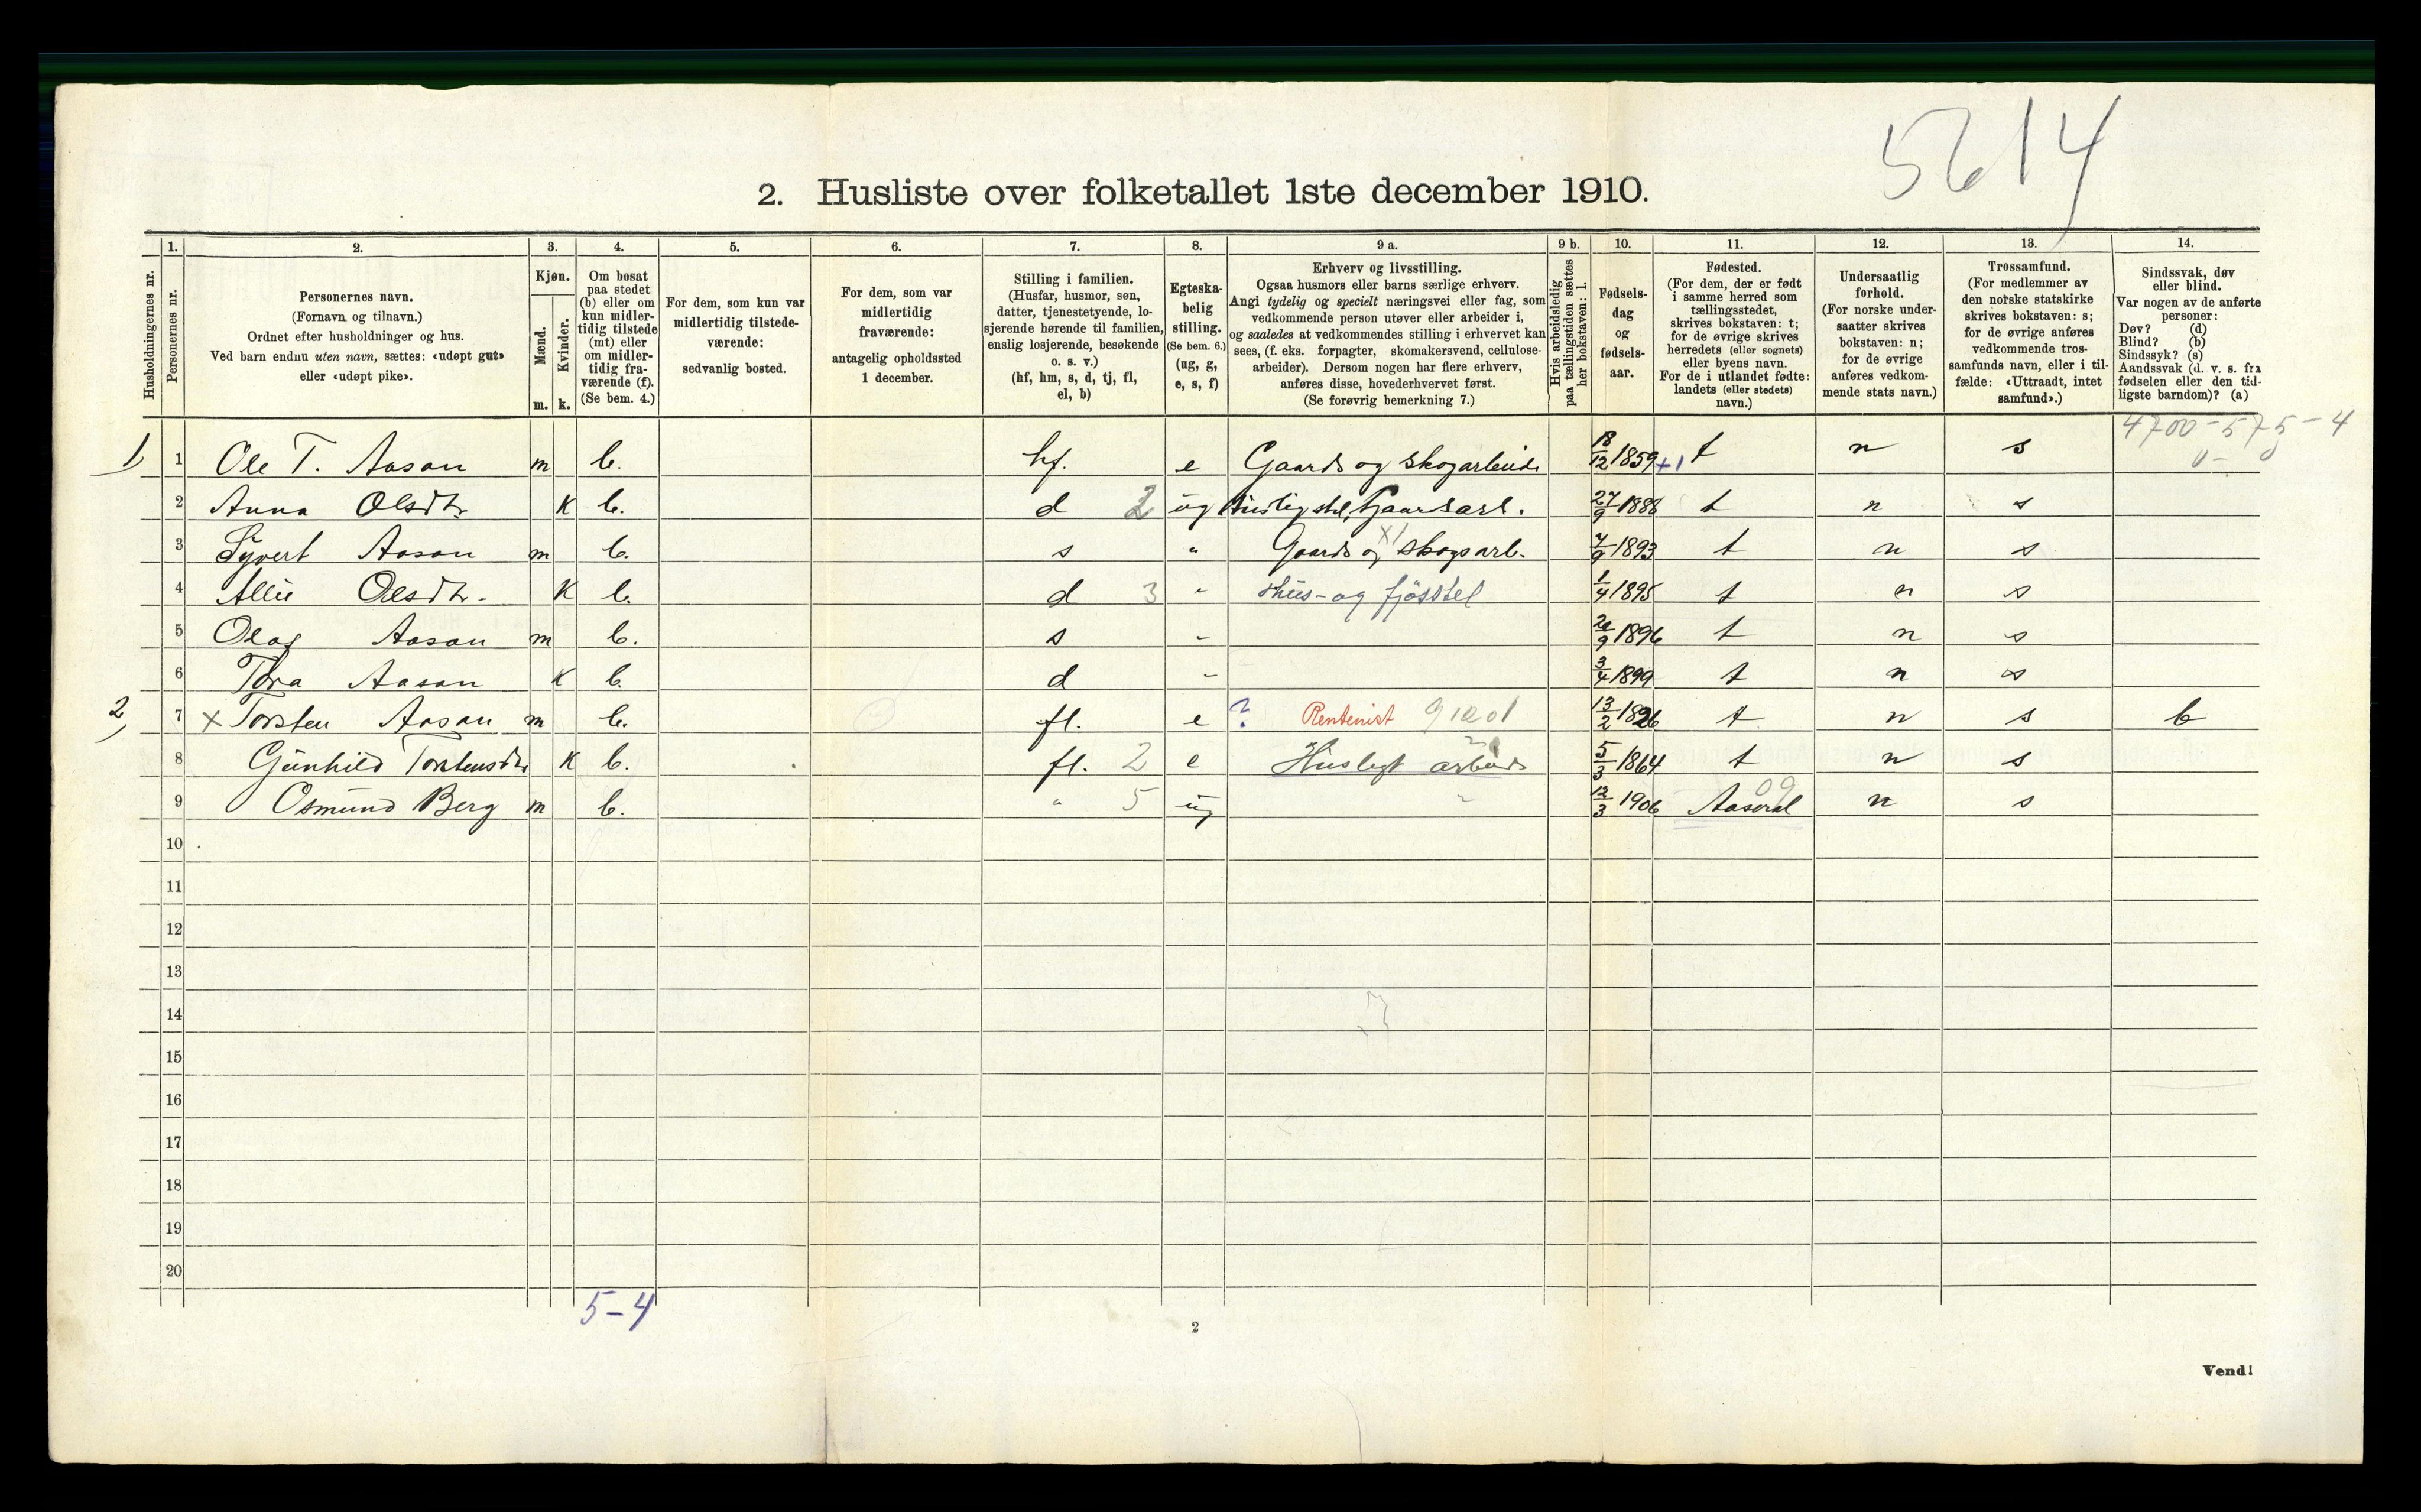 5614
2. Husliste over folketallet 1ste december 1910.
Husholdningernes nr.
1. Personernes nr.
2. Personernes navn. (Fornavn og tilnavn.) Ordnet efter husholdninger og hus. Ved barn endnu uten navn, sættes: «udøpt gut» eller «udøpt pike».
3. Kjøn. Mænd. m. Kvinder. k.
4. Om bosat paa stedet (b) eller om kun midlertidig tilstede (mt) eller om midlertidig fraværende (f). (Se bem. 4.)
5. For dem, som kun var midlertidig tilstedeværende: sedvanlig bosted.
6. For dem, som var midlertidig fraværende: antagelig opholdssted 1 december.
7. Stilling i familien. (Husfar, husmor, søn, datter, tjenestetyende, losjerende hørende til familien, enslig losjerende, besøkende o. s. v.) (hf, hm, s, d, tj, fl, el, b)
8. Egteskabelig stilling. (Se bem. 6.) (ug, g, e, s, f)
9 a. Erhverv og livsstilling. Ogsaa husmors eller barns særlige erhverv. Angi tydelig og specielt næringsvei eller fag, som vedkommende person utøver eller arbeider i, og saaledes at vedkommendes stilling i erhvervet kan sees, (f. eks. forpagter, skomakersvend, cellulosearbeider). Dersom nogen har flere erhverv, anføres disse, hovederhvervet først. (Se forøvrig bemerkning 7.)
9 b. Hvis arbeidsledig paa tællingstiden sættes her bokstaven: l.
10. Fødselsdag og fødselsaar.
11. Fødested. (For dem, der er født i samme herred som tællingsstedet, skrives bokstaven: t; for de øvrige skrives herredets (eller sognets) eller byens navn. For de i utlandet fødte: landets (eller stedets) navn.)
12. Undersaatlig forhold. (For norske undersaatter skrives bokstaven: n; for de øvrige anføres vedkommende stats navn.)
13. Trossamfund. (For medlemmer av den norske statskirke skrives bokstaven: s; for de øvrige anføres vedkommende trossamfunds navn, eller i tilfælde: «Uttraadt, intet samfund».)
14. Sindssvak, døv eller blind. Var nogen av de anførte personer: Døv? (d) Blind? (b) Sindssyk? (s) Aandssvak (d. v. s. fra fødselen eller den tidligste barndom)? (a)
4700-575-4
0-
1) 1 Ole T. Aasan m b. hf. e Gaards og skogarbeide 18/12 1859 +1 t n s
2 Anna Olsdtr. K b. d 2 ug Husligstel, Gaardsarb. 27/9 1888 t n s
3 Syvert Aasan m b. s " Gaards og skogsarb. 4/9 1893 t n s
4 Allie Olsdtr. K b. d 3 " Hus- og fjøsstel 1/4 1895 t n s
5 Olag Aasan m b. s " 20/9 1896 t n s
6 Tora Aasan K b. d " 3/4 1899 t n s
2) 7 x Torsten Aasan m b. fl. e ? Rentenist 91201 13/2 1826 t n s b
8 Gunhild Torstensdtr K b. fl. 2 e Husligt arbeide 5/3 1864 t n s
9 Osmund Berg m b. " 5 ug " 12/3 1906 Aaseral 09 n s
10
11
12
13
14
15
16
17
18
19
20
5-4
2
Vend!